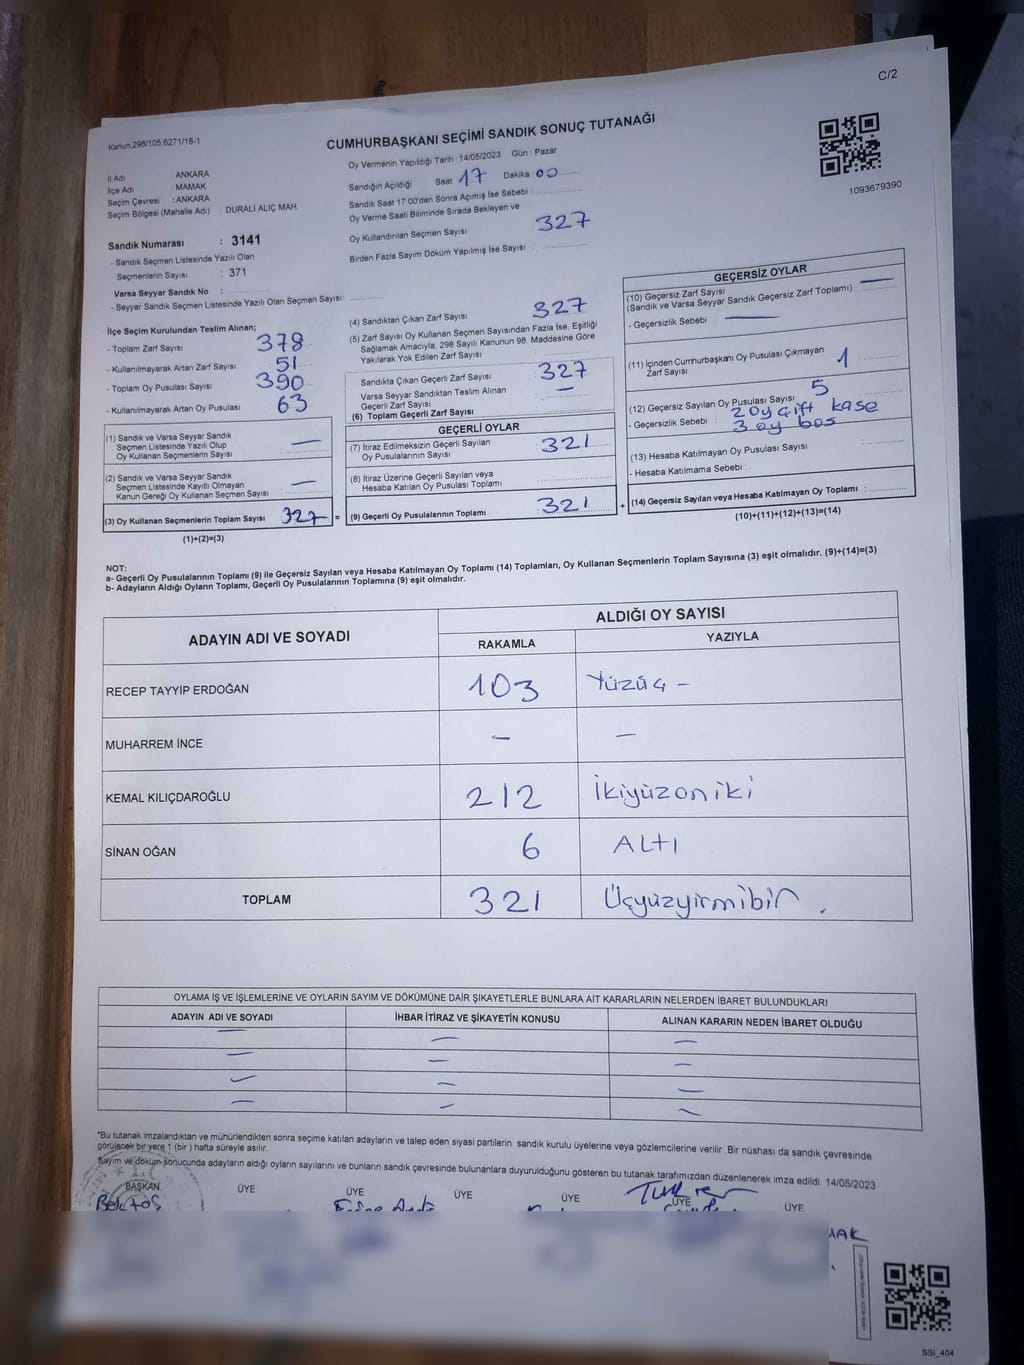 C/2
Kanun.298/105.6271/18-1
CUMHURBAŞKANI SEÇİMİ SANDIK SONUÇ TUTANAĞI
1093679390
İl Adı : ANKARA
İlçe Adı : MAMAK
Seçim Çevresi : ANKARA
Seçim Bölgesi (Mahalle Adı) : DURALİ ALIÇ MAH.
Sandık Numarası : 3141
- Sandık Seçmen Listesinde Yazılı Olan
Seçmenlerin Sayısı : 371
Varsa Seyyar Sandık No :
- Seyyar Sandık Seçmen Listesinde Yazılı Olan Seçmen Sayısı:
Oy Vermenin Yapıldığı Tarih : 14/05/2023 Gün : Pazar
Sandığın Açıldığı Saat 17 Dakika 00
Sandık Saat 17.00'den Sonra Açımış İse Sebebi :
Oy Verme Saati Bitiminde Sırada Bekleyen ve
Oy Kullandırılan Seçmen Sayısı : 327
Birden Fazla Sayım Döküm Yapılmış İse Sayısı :
İlçe Seçim Kurulundan Teslim Alınan;
- Toplam Zarf Sayısı : 378
- Kullanılmayarak Artan Zarf Sayısı : 51
- Toplam Oy Pusulası Sayısı : 390
- Kullanılmayarak Artan Oy Pusulası : 63
(1) Sandık ve Varsa Seyyar Sandık
Seçmen Listesinde Yazılı Olup
Oy Kullanan Seçmenlerin Sayısı : —
(2) Sandık ve Varsa Seyyar Sandık
Seçmen Listesinde Kayıtlı Olmayan
Kanun Gereği Oy Kullanan Seçmen Sayısı : —
(3) Oy Kullanan Seçmenlerin Toplam Sayısı : 327 =
(1)+(2)=(3)
(4) Sandıktan Çıkan Zarf Sayısı : 327
(5) Zarf Sayısı Oy Kullanan Seçmen Sayısından Fazla İse, Eşitliği
Sağlamak Amacıyla, 298 Sayılı Kanunun 98. Maddesine Göre
Yakılarak Yok Edilen Zarf Sayısı :
Sandıkta Çıkan Geçerli Zarf Sayısı : 327
Varsa Seyyar Sandıktan Teslim Alınan
Geçerli Zarf Sayısı : —
(6) Toplam Geçerli Zarf Sayısı :
GEÇERLİ OYLAR
(7) İtiraz Edilmeksizin Geçerli Sayılan
Oy Pusulalarının Sayısı : 321
(8) İtiraz Üzerine Geçerli Sayılan veya
Hesaba Katılan Oy Pusulası Toplamı :
(9) Geçerli Oy Pusulalarının Toplamı : 321 +
GEÇERSİZ OYLAR
(10) Geçersiz Zarf Sayısı
(Sandık ve Varsa Seyyar Sandık Geçersiz Zarf Toplamı) : —
- Geçersizlik Sebebi : —
(11) İçinden Cumhurbaşkanı Oy Pusulası Çıkmayan
Zarf Sayısı 1
(12) Geçersiz Sayılan Oy Pusulası Sayısı : 5
- Geçersizlik Sebebi : 2 oy çift kaşe
3 oy boş
(13) Hesaba Katılmayan Oy Pusulası Sayısı :
- Hesaba Katılmama Sebebi :
(14) Geçersiz Sayılan veya Hesaba Katılmayan Oy Toplamı :
(10)+(11)+(12)+(13)=(14)
NOT:
a- Geçerli Oy Pusulalarının Toplamı (9) ile Geçersiz Sayılan veya Hesaba Katılmayan Oy Toplamı (14) Toplamları, Oy Kullanan Seçmenlerin Toplam Sayısına (3) eşit olmalıdır. (9)+(14)=(3)
b- Adayların Aldığı Oyların Toplamı, Geçerli Oy Pusulalarının Toplamına (9) eşit olmalıdır.
ADAYIN ADI VE SOYADI ALDIĞI OY SAYISI
RAKAMLA YAZIYLA
RECEP TAYYİP ERDOĞAN 103 Yüzüç -
MUHARREM İNCE — —
KEMAL KILIÇDAROĞLU 212 İkiyüzoniki
SİNAN OĞAN 6 ALtı
TOPLAM 321 Üçyüzyirmibir .
OYLAMA İŞ VE İŞLEMLERİNE VE OYLARIN SAYIM VE DÖKÜMÜNE DAİR ŞİKAYETLERLE BUNLARA AİT KARARLARIN NELERDEN İBARET BULUNDUKLARI
ADAYIN ADI VE SOYADI İHBAR İTİRAZ VE ŞİKAYETİN KONUSU ALINAN KARARIN NEDEN İBARET OLDUĞU
*Bu tutanak imzalandıktan ve mühürlendikten sonra seçime katılan adayların ve talep eden siyasi partilerin sandık kurulu üyelerine veya gözlemcilerine verilir. Bir nüshası da sandık çevresinde
görülecek bir yere 1 (bir ) hafta süreyle asılır.
Sayım ve döküm sonucunda adayların aldığı oyların sayılarını ve bunların sandık çevresinde bulunanlara duyurulduğunu gösteren bu tutanak tarafımızdan düzenlenerek imza edildi. 14/05/2023
BAŞKAN ÜYE ÜYE ÜYE ÜYE ÜYE ÜYE
Bektaş
SSI_404